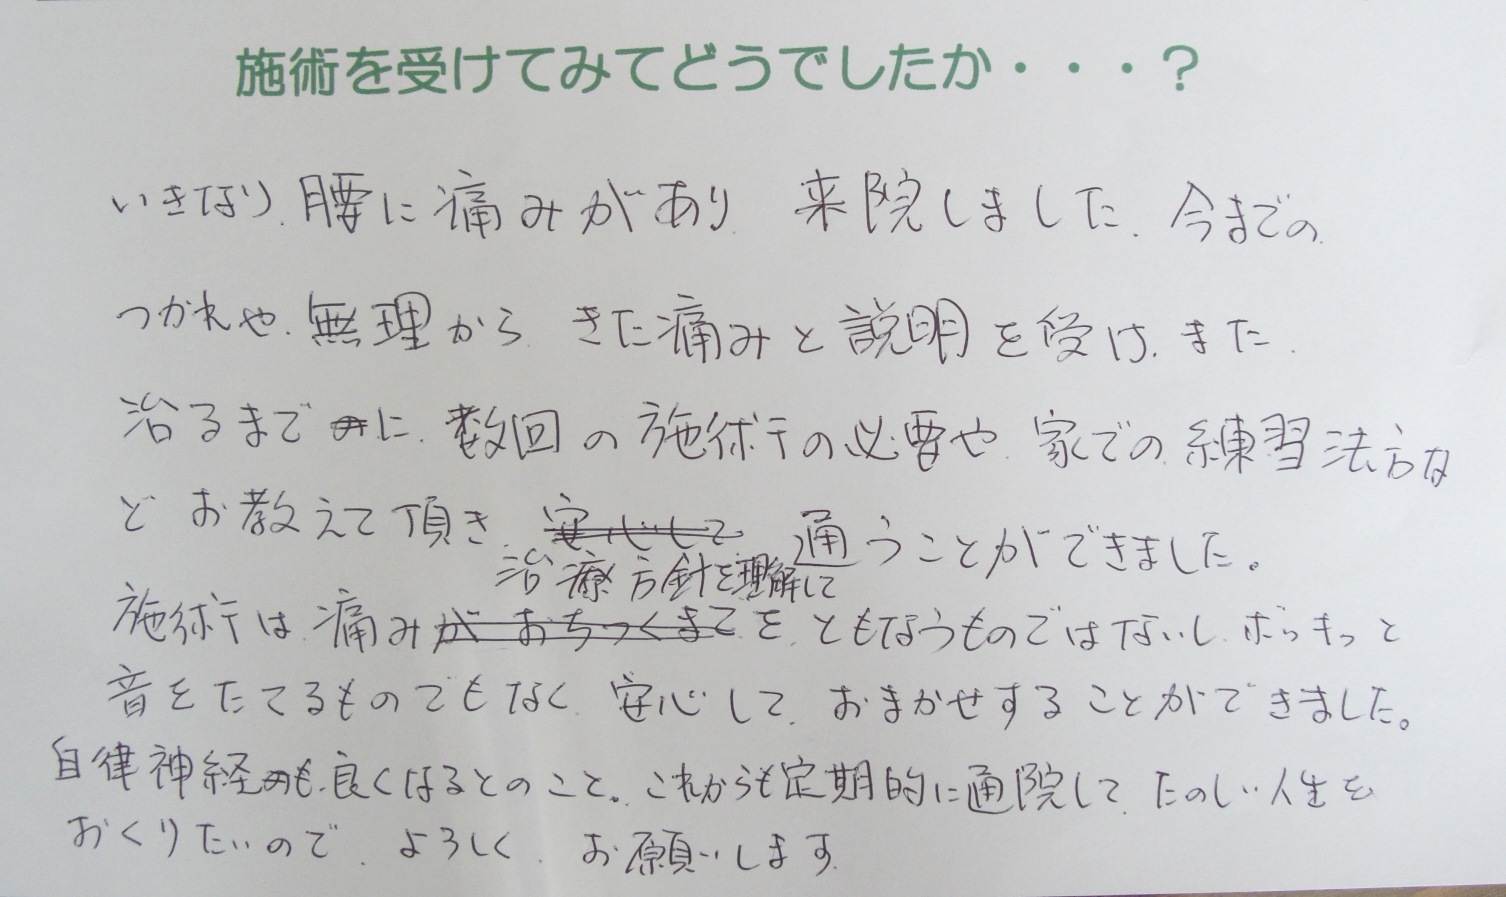 施術を受けてみてどうでしたか・・・？
いきなり、腰に痛みがあり、来院しました、今までの
つかれや、無理から、きた痛みと説明を受け、また、
治るまでに、数回の施術の必要や、家での練習法方な
ど お教えて頂き、安心して 通うことができました。
治療方針を理解して
施術は、痛みが おちつくまで を、ともなうものではないし、ボッキっと
音をたてるものでもなく、安心して、おまかせすることができました。
自律神経も、良くなるとのこと。これからも定期的に通院して、たのしい人生を
おくりたいので、よろしく、お願いします。